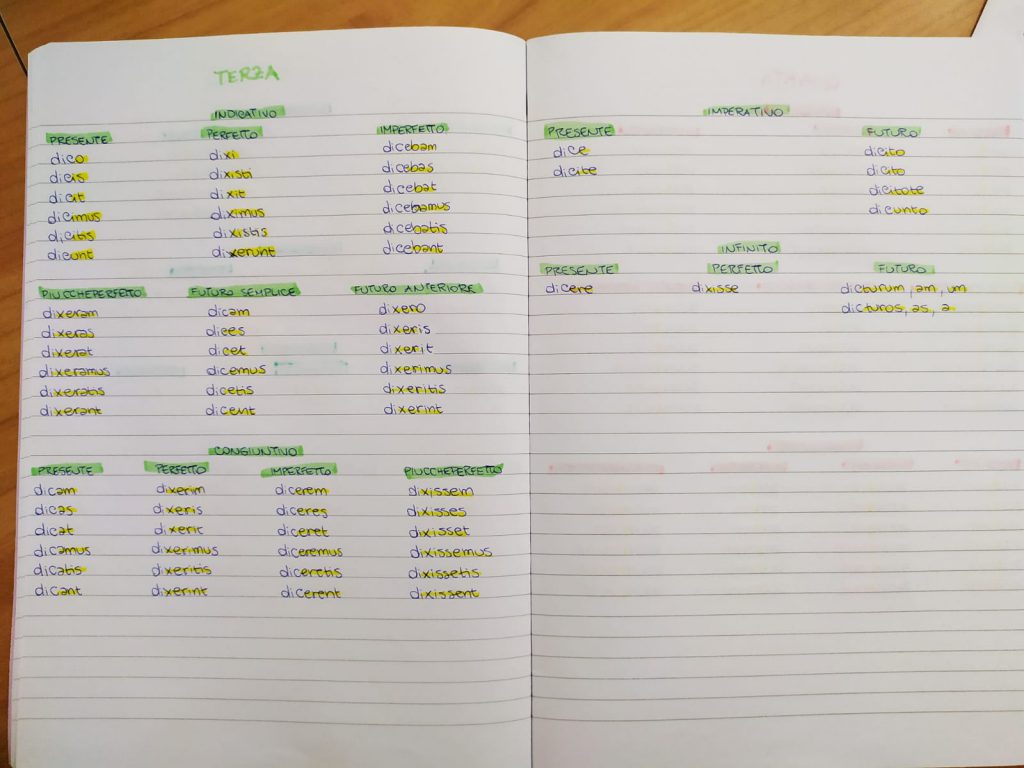 TERZA
INDICATIVO
PRESENTE PERFETTO IMPERFETTO
dico dixi dicebam
dicis dixisti dicebas
dicit dixit dicebat
dicimus diximus dicebamus
dicitis dixistis dicebatis
dicunt dixerunt dicebant
PIUCCHEPERFETTO FUTURO SEMPLICE FUTURO ANTERIORE
dixeram dicam dixero
dixeras dices dixeris
dixerat dicet dixerit
dixeramus dicemus dixerimus
dixeratis dicetis dixeritis
dixerant dicent dixerint
CONGIUNTIVO
PRESENTE PERFETTO IMPERFETTO PIUCCHEPERFETTO
dicam dixerim dicerem dixissem
dicas dixeris diceres dixisses
dicat dixerit diceret dixisset
dicamus dixerimus diceremus dixissemus
dicatis dixeritis diceretis dixissetis
dicant dixerint dicerent dixissent
IMPERATIVO
PRESENTE FUTURO
dice dicito
dicite dicito
dicitote
dicunto
INFINITO
PRESENTE PERFETTO FUTURO
dicere dixisse dicturum, am, um
dicturos, as, a